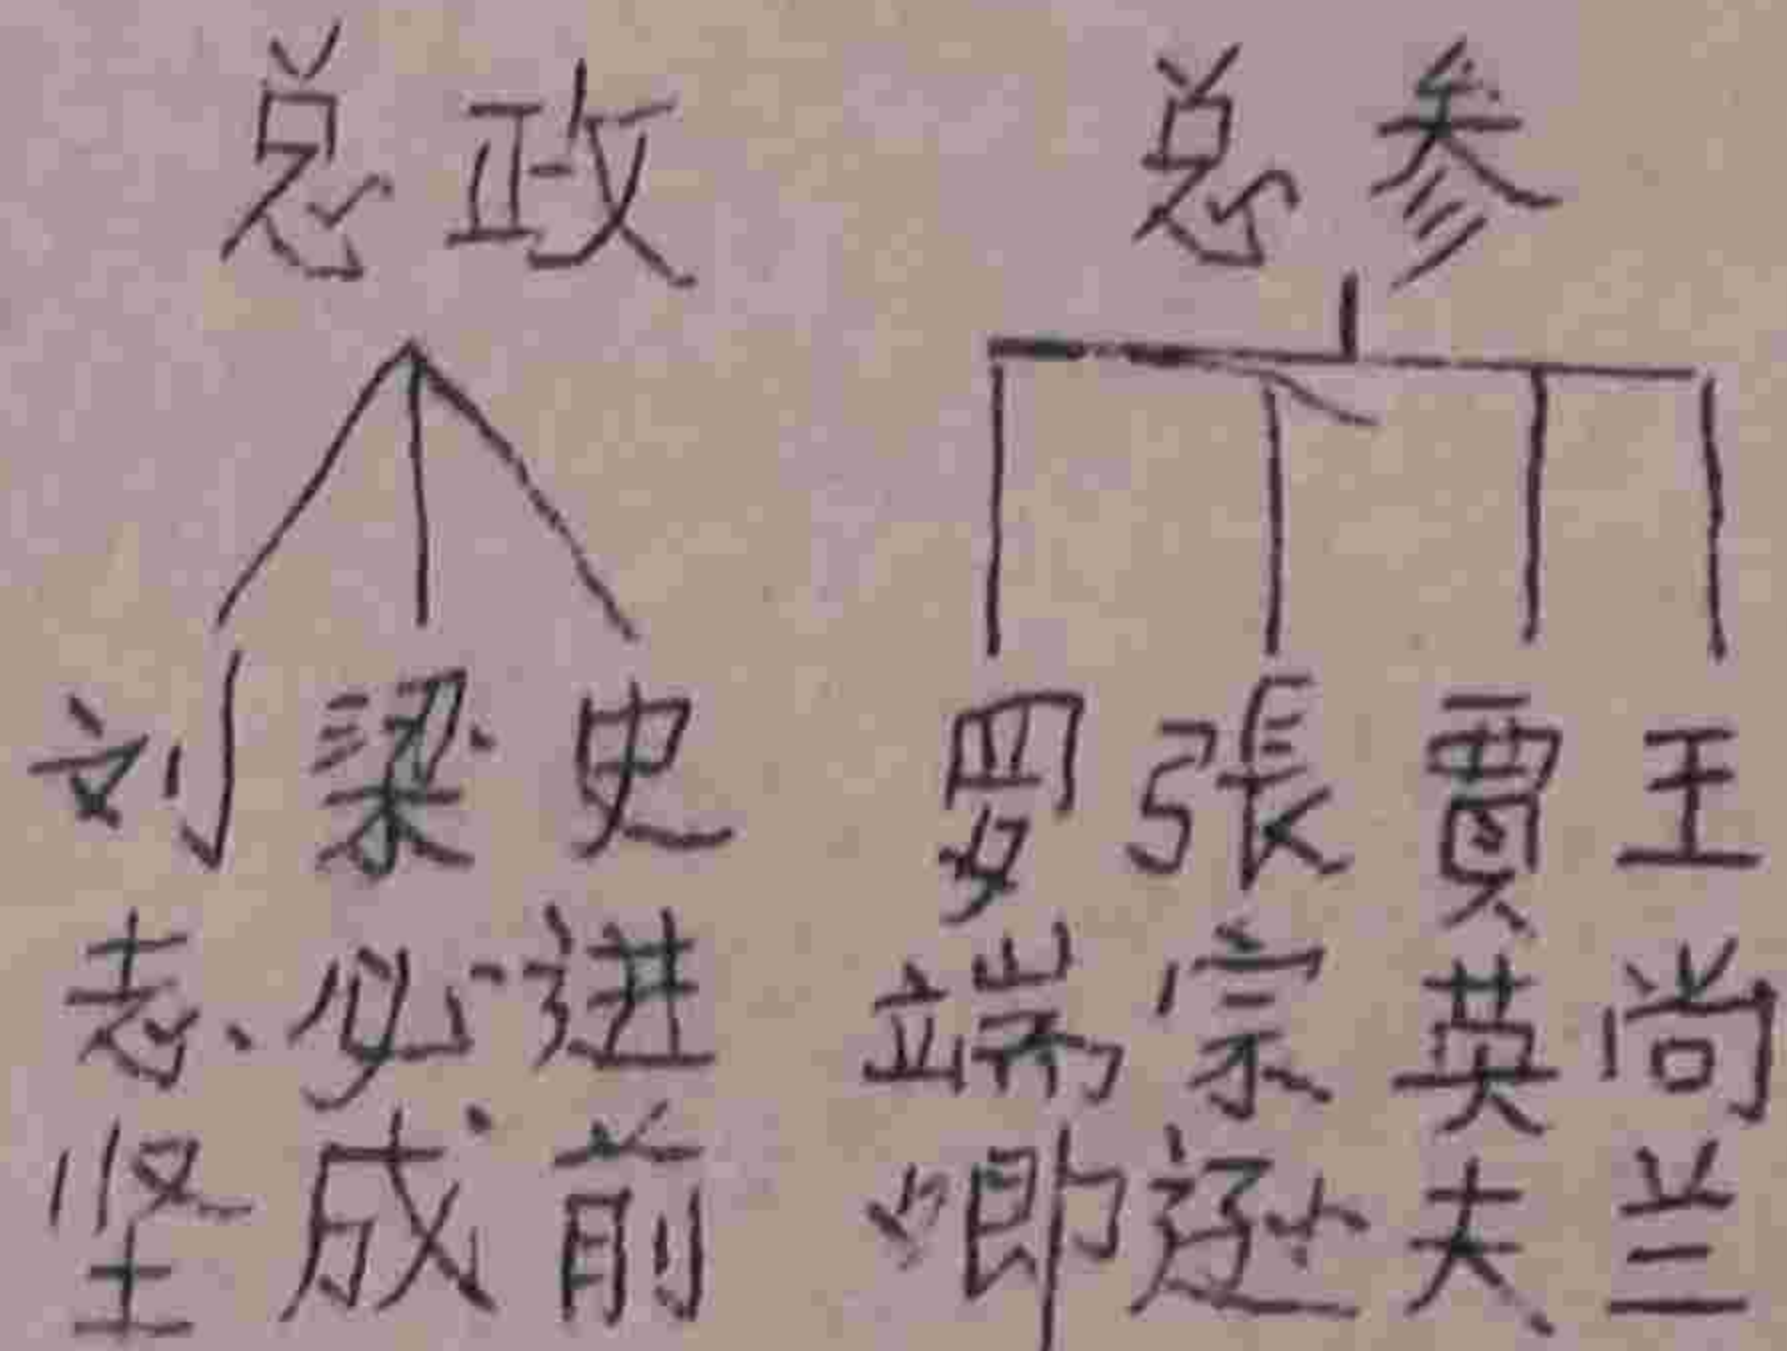 总政
总参
刘志坚
梁必成
史进前
罗端卿
張宗逊
賈英夫
王尚兰